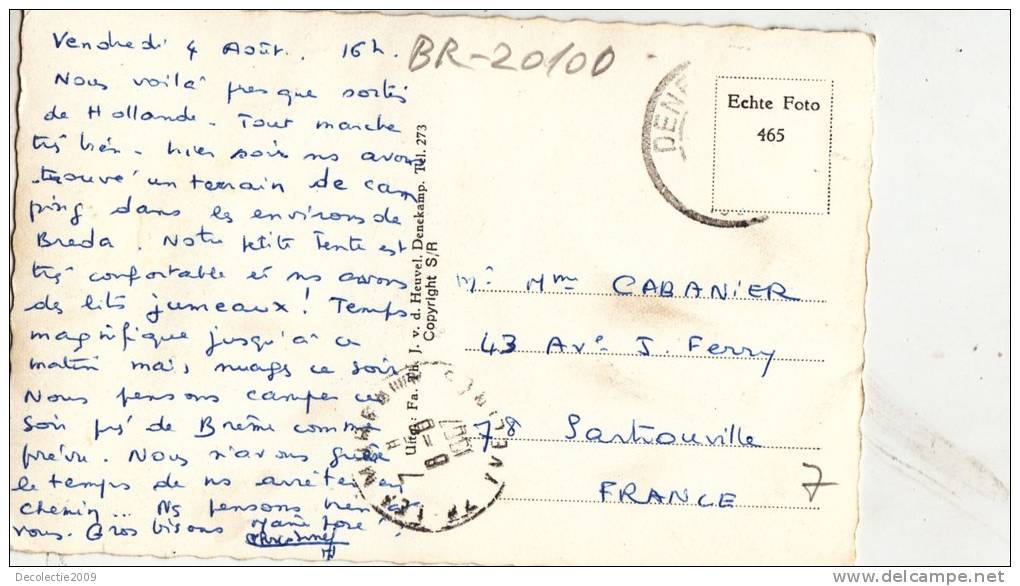 Vendredi 4 Août. 16h.
Nous voilà presque sortis
de Hollande. Tout marche
très bien. hier soir ns avons
trouvé un terrain de cam
ping dans les environs de
Breda. Notre petite tente est
très confortable et ns avons
des lits jumeaux! Temps
magnifique jusqu'à ce
matin mais nuages ce soir
Nous pensons camper ce
soir près de Brême comme
prévu. Nous n'avons guère
le temps de ns arrêter en
chemin... Ns pensons bien à
vous. Gros bisous
BR-20100
Uitg.: Fa. Th. J. v. d. Heuvel, Denekamp. Tel. 273
Copyright S/R
DENE
Echte Foto
465
Mr Mme CABANIER
43 Ave J. Ferry
78 Sartrouville
FRANCE
7
Decolectie2009
www.delcampe.net